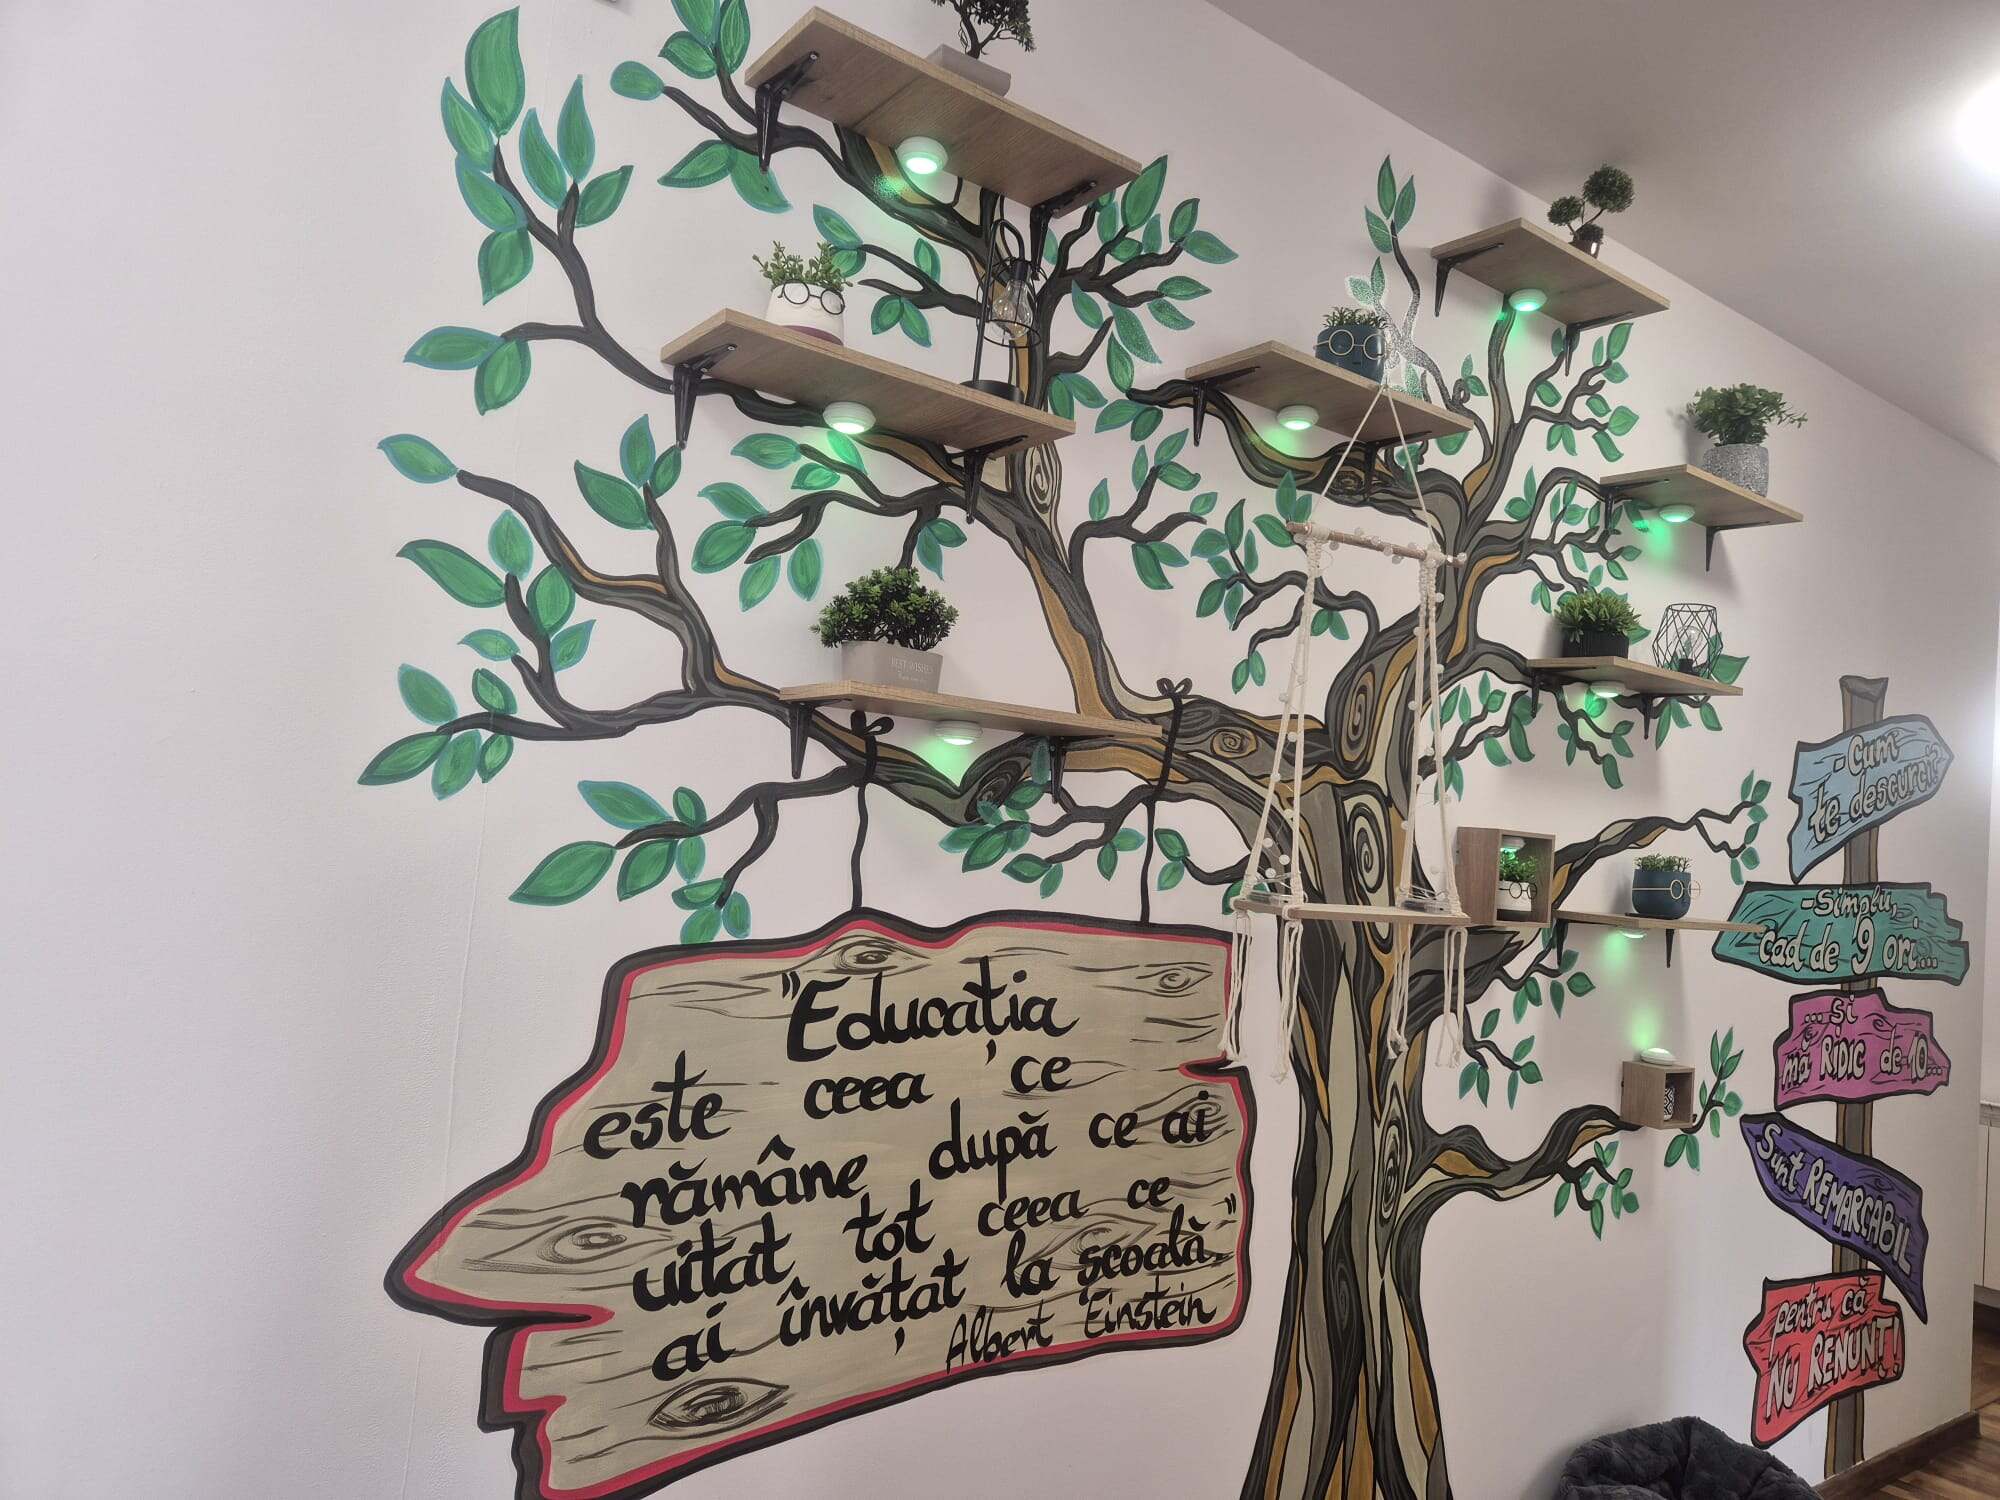 "Educația
este ceea ce
rămâne după ce ai
uitat tot ceea ce
ai învățat la școală."
Albert Einstein
BEST WISHES
-Cum
te descurci?
-Simplu,
cad de 9 ori...
...și
mă RIDIC de 10...
Sunt REMARCABIL
pentru că
NU RENUNȚ!